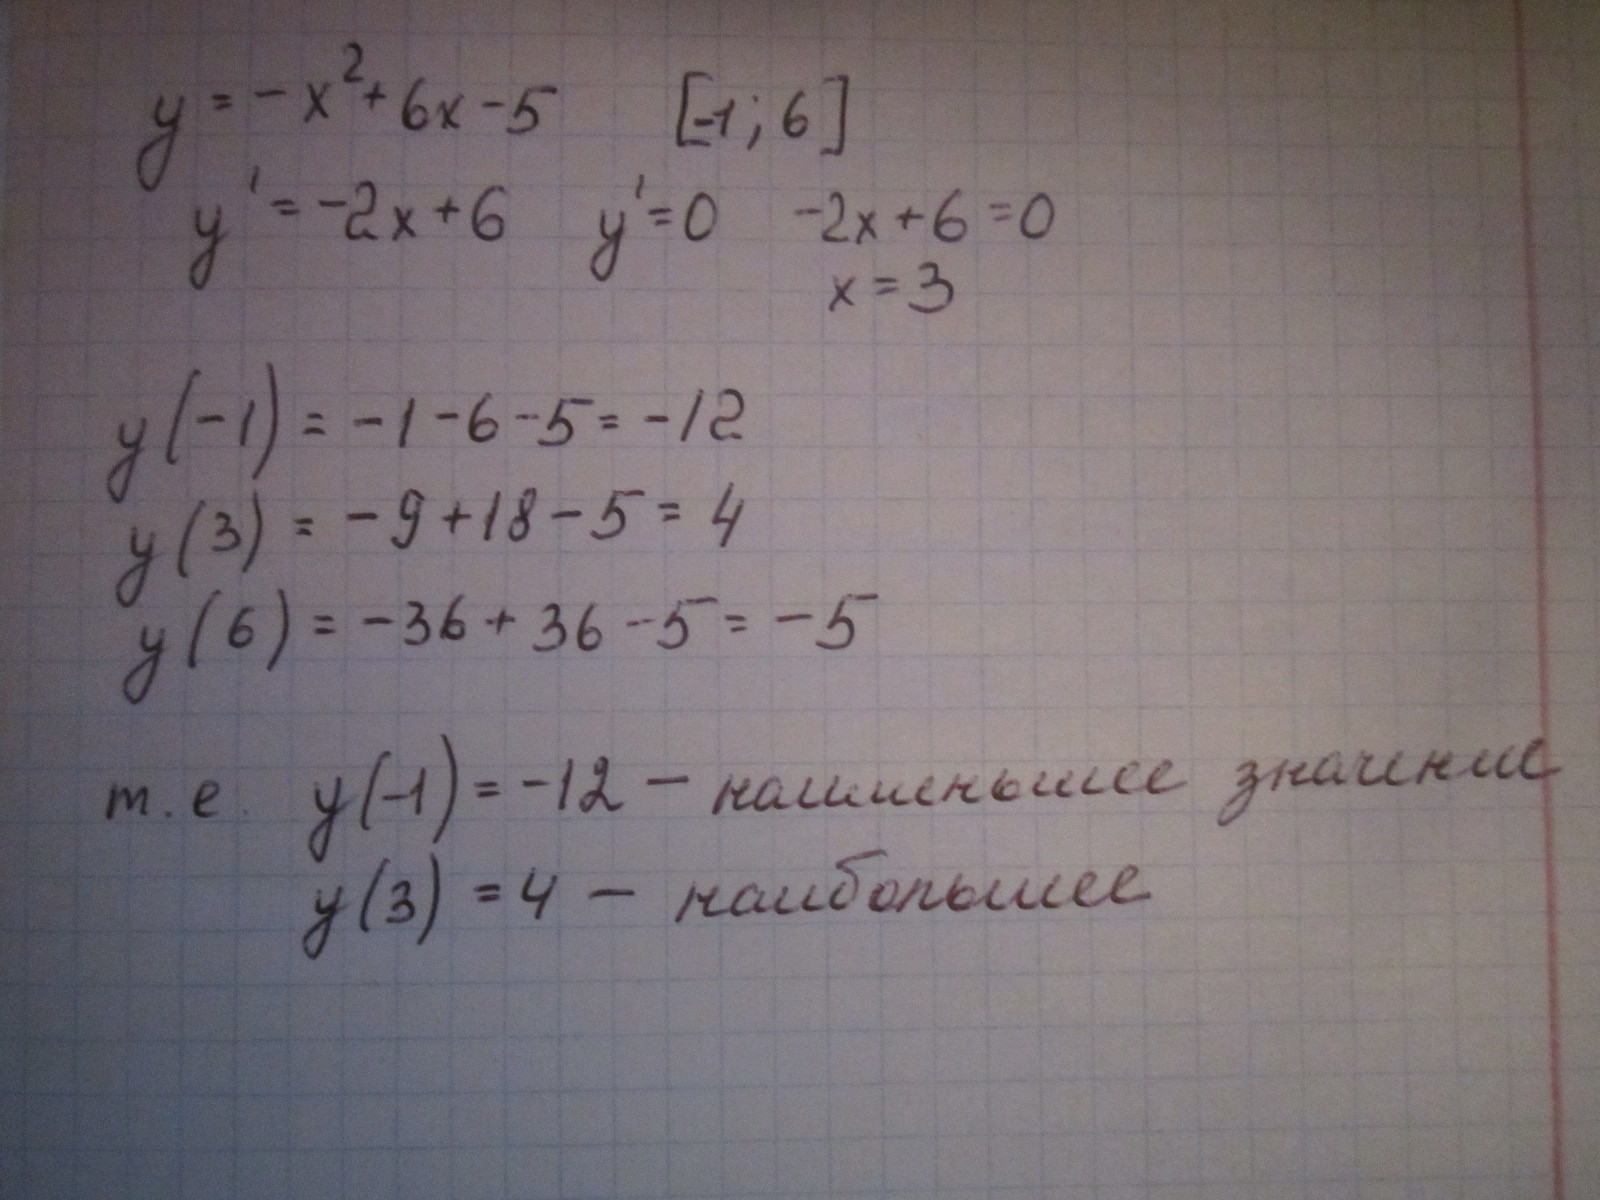 y = -x² + 6x - 5 [-1; 6]
y' = -2x + 6 y' = 0 -2x + 6 = 0
x = 3
y(-1) = -1 - 6 - 5 = -12
y(3) = -9 + 18 - 5 = 4
y(6) = -36 + 36 - 5 = -5
т.е. y(-1) = -12 — наименьшее значение
y(3) = 4 — наибольшее